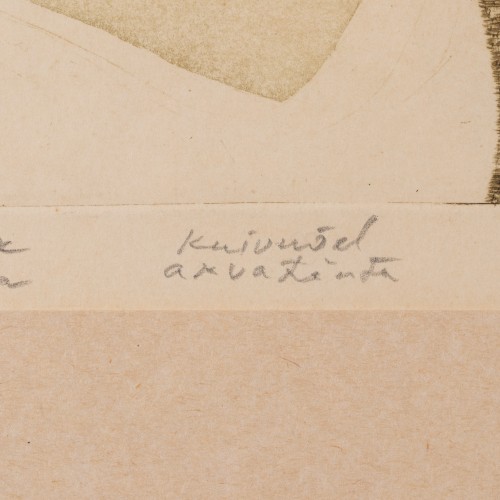 Kuivnõel
akvatinta